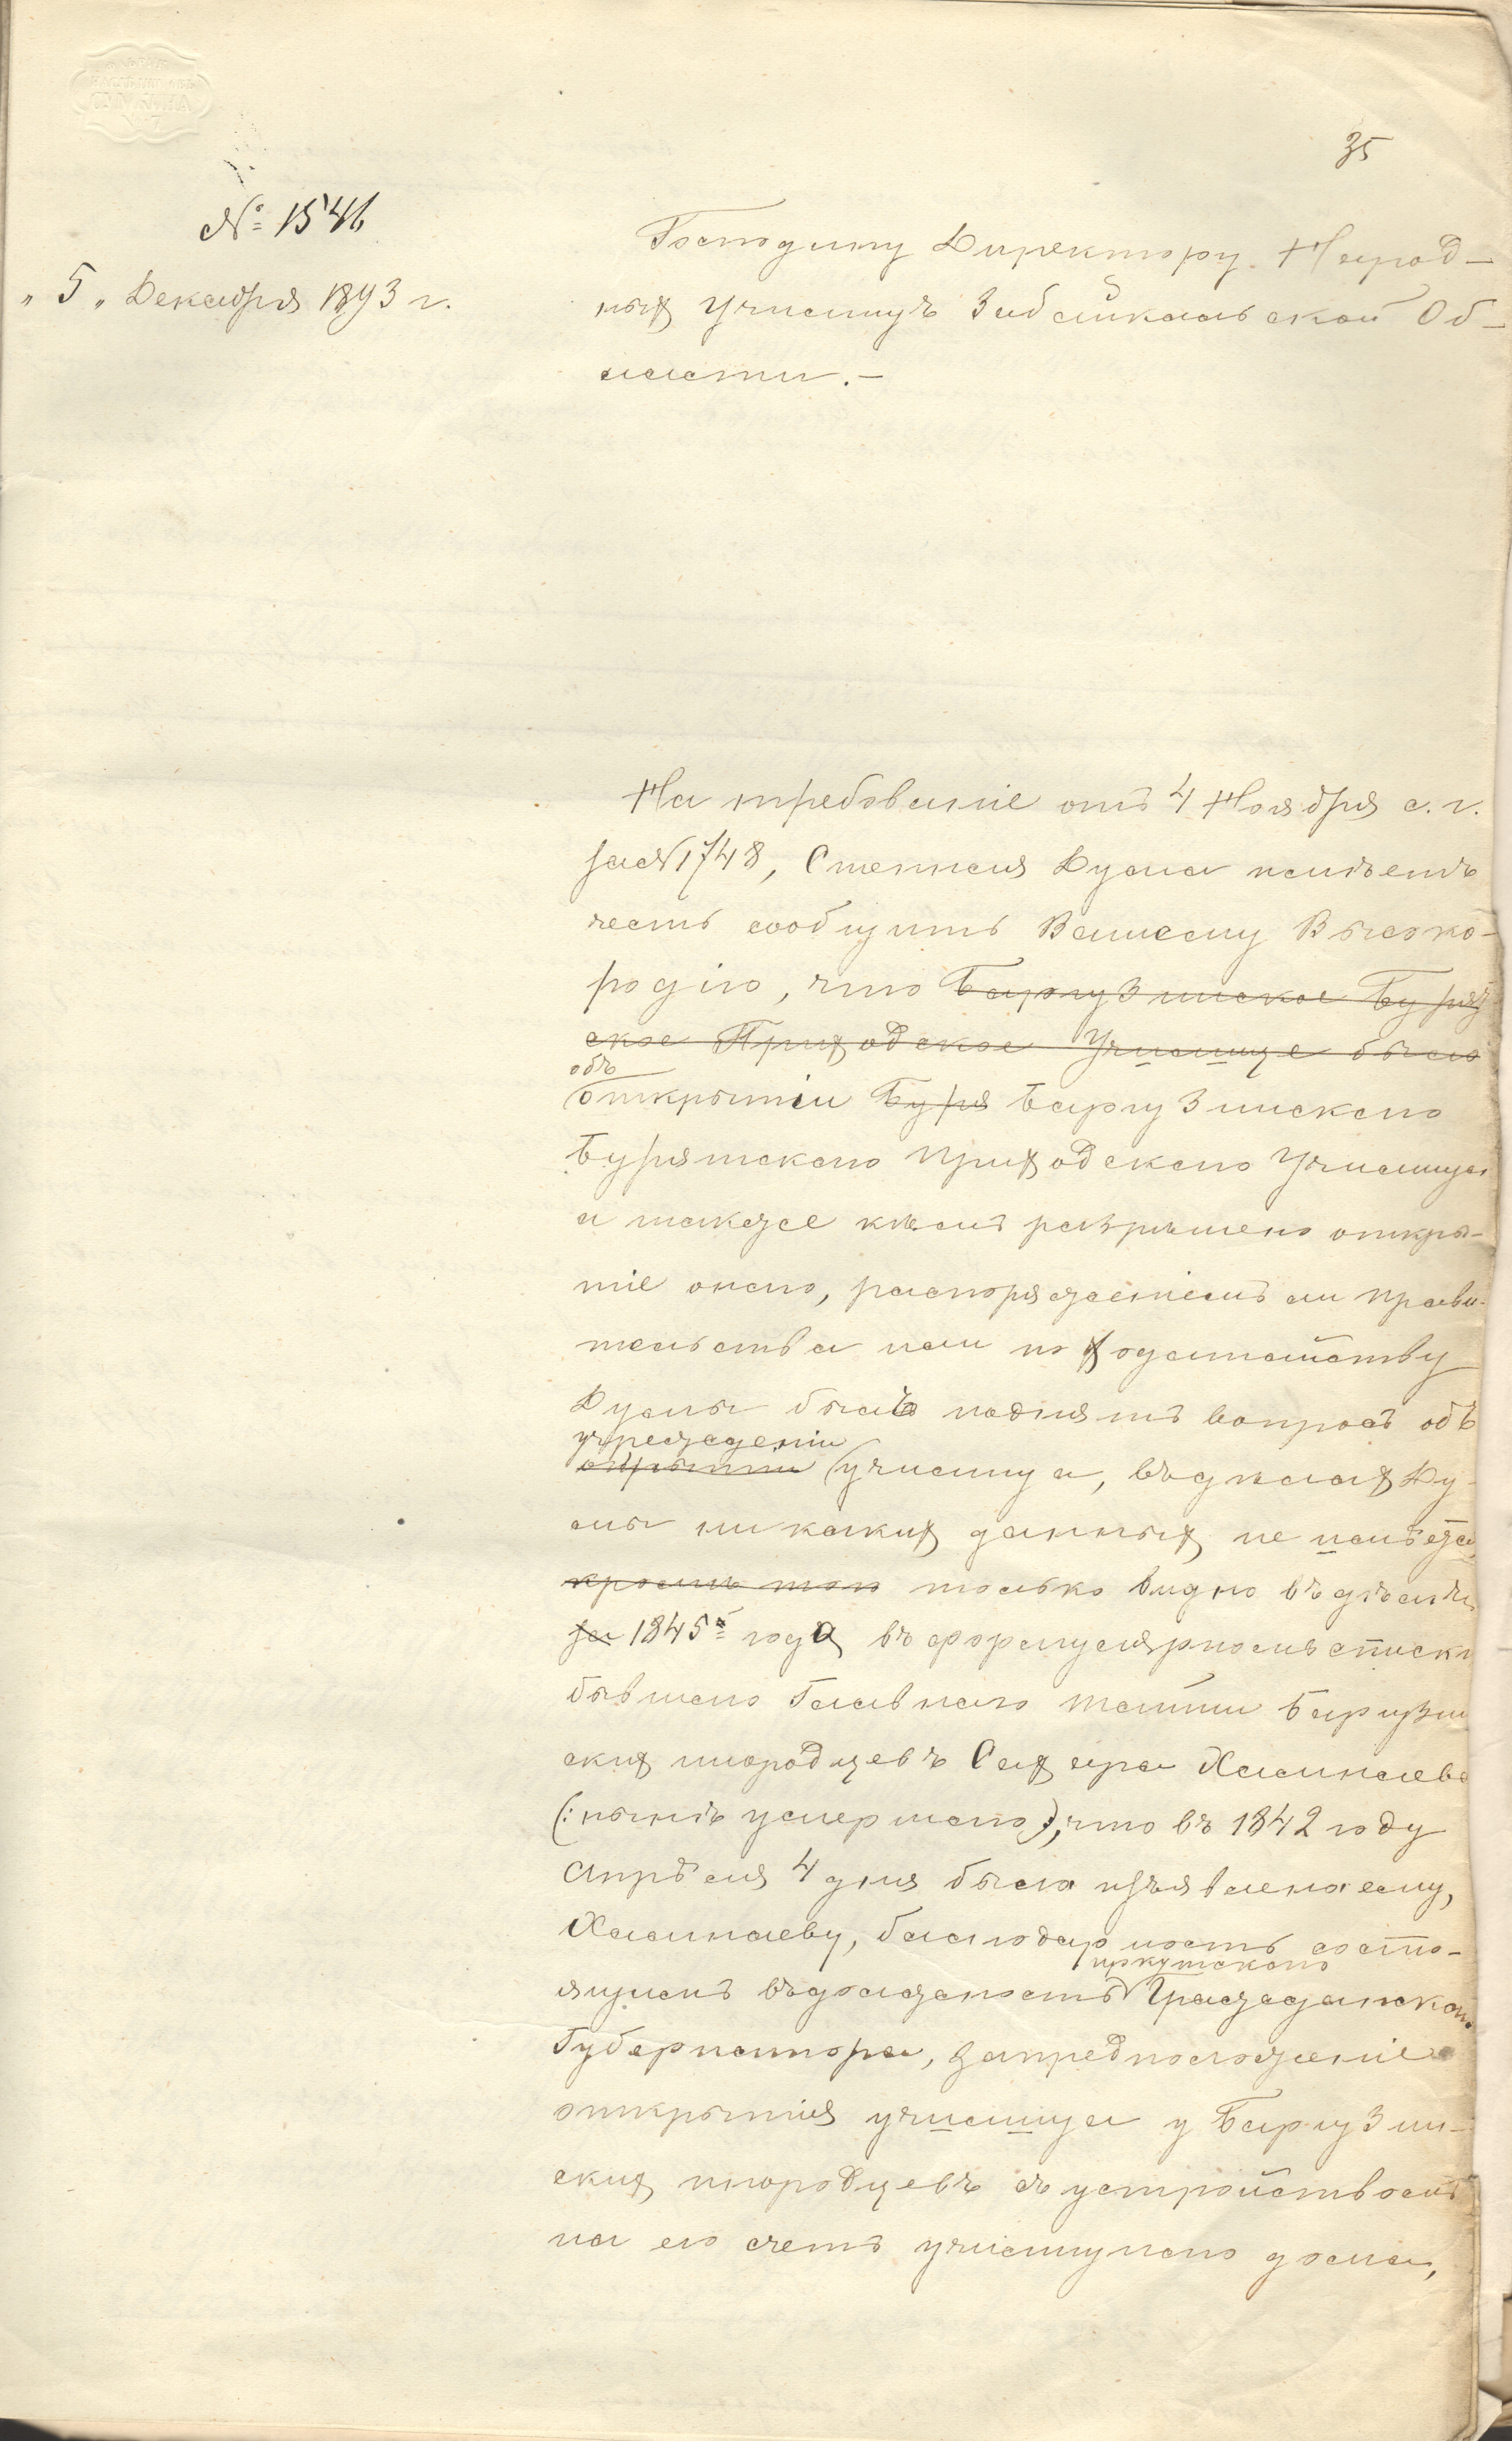 35
№ 1546
"5" Декабря 1893 г.
Господину Директору Народ-
ныхъ Училищъ Забайкальской Об-
ласти.-
На требованіе отъ 4 Ноября с. г.
за № 1748, Степная Дума имѣетъ
честь сообщить Вашему Высоко-
родію, что Баргузинское Бурят
ское Приходское Училище было
объ
открытіи Буря Баргузинскаго
Бурятскаго Приходскаго Училища
а также кѣмъ разрѣшено откры-
тіе онаго, распоряженіемъ ли Прави-
тельства или по ходатайству
Думы былъ поднятъ вопросъ объ
учрежденіи
открытіи училища, въ дѣлахъ Ду-
мы никакихъ данныхъ не имѣется
кромѣ того только видно въ дѣлѣ
за 1845 года въ формулярномъ списки
бывшаго Главнаго Тайши Баргузин
скихъ инородцевъ Сахара Хамнаева
(: нынѣ умершаго), что въ 1842 году
Апрѣля 4 дня была изъявлена ему,
Хамнаеву, благодарность состо-
иркутскаго
ящимъ въ должность Гражданскаго
Губернатора, за предположеніе
открытія училища у Баргузин-
скихъ инородцевъ съ устройствомъ
на его счетъ училищнаго дома,